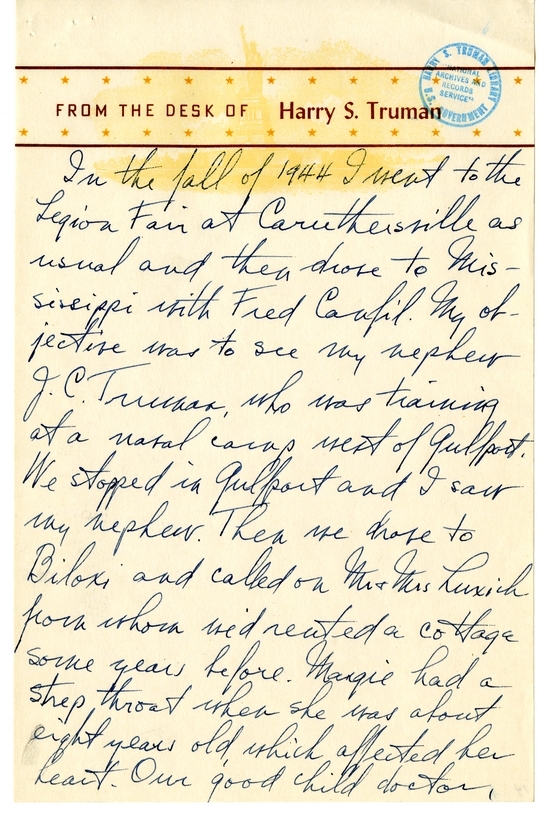 HARRY S. TRUMAN LIBRARY
"NATIONAL
ARCHIVES AND
RECORDS
SERVICE"
U.S. GOVERNMENT
FROM THE DESK OF Harry S. Truman
In the fall of 1944 I went to the
Legion Fair at Caruthersville as
usual and then drove to Mis-
sissippi with Fred Canfil. My ob-
jective was to see my nephew
J. C. Truman, who was training
at a naval camp west of Gulfport.
We stopped in Gulfport and I saw
my nephew. Then we drove to
Biloxi and called on Mr & Mrs Luxich
from whom we'd rented a cottage
some years before. Margie had a
strep throat when she was about
eight years old which affected her
heart. Our good child doctor,